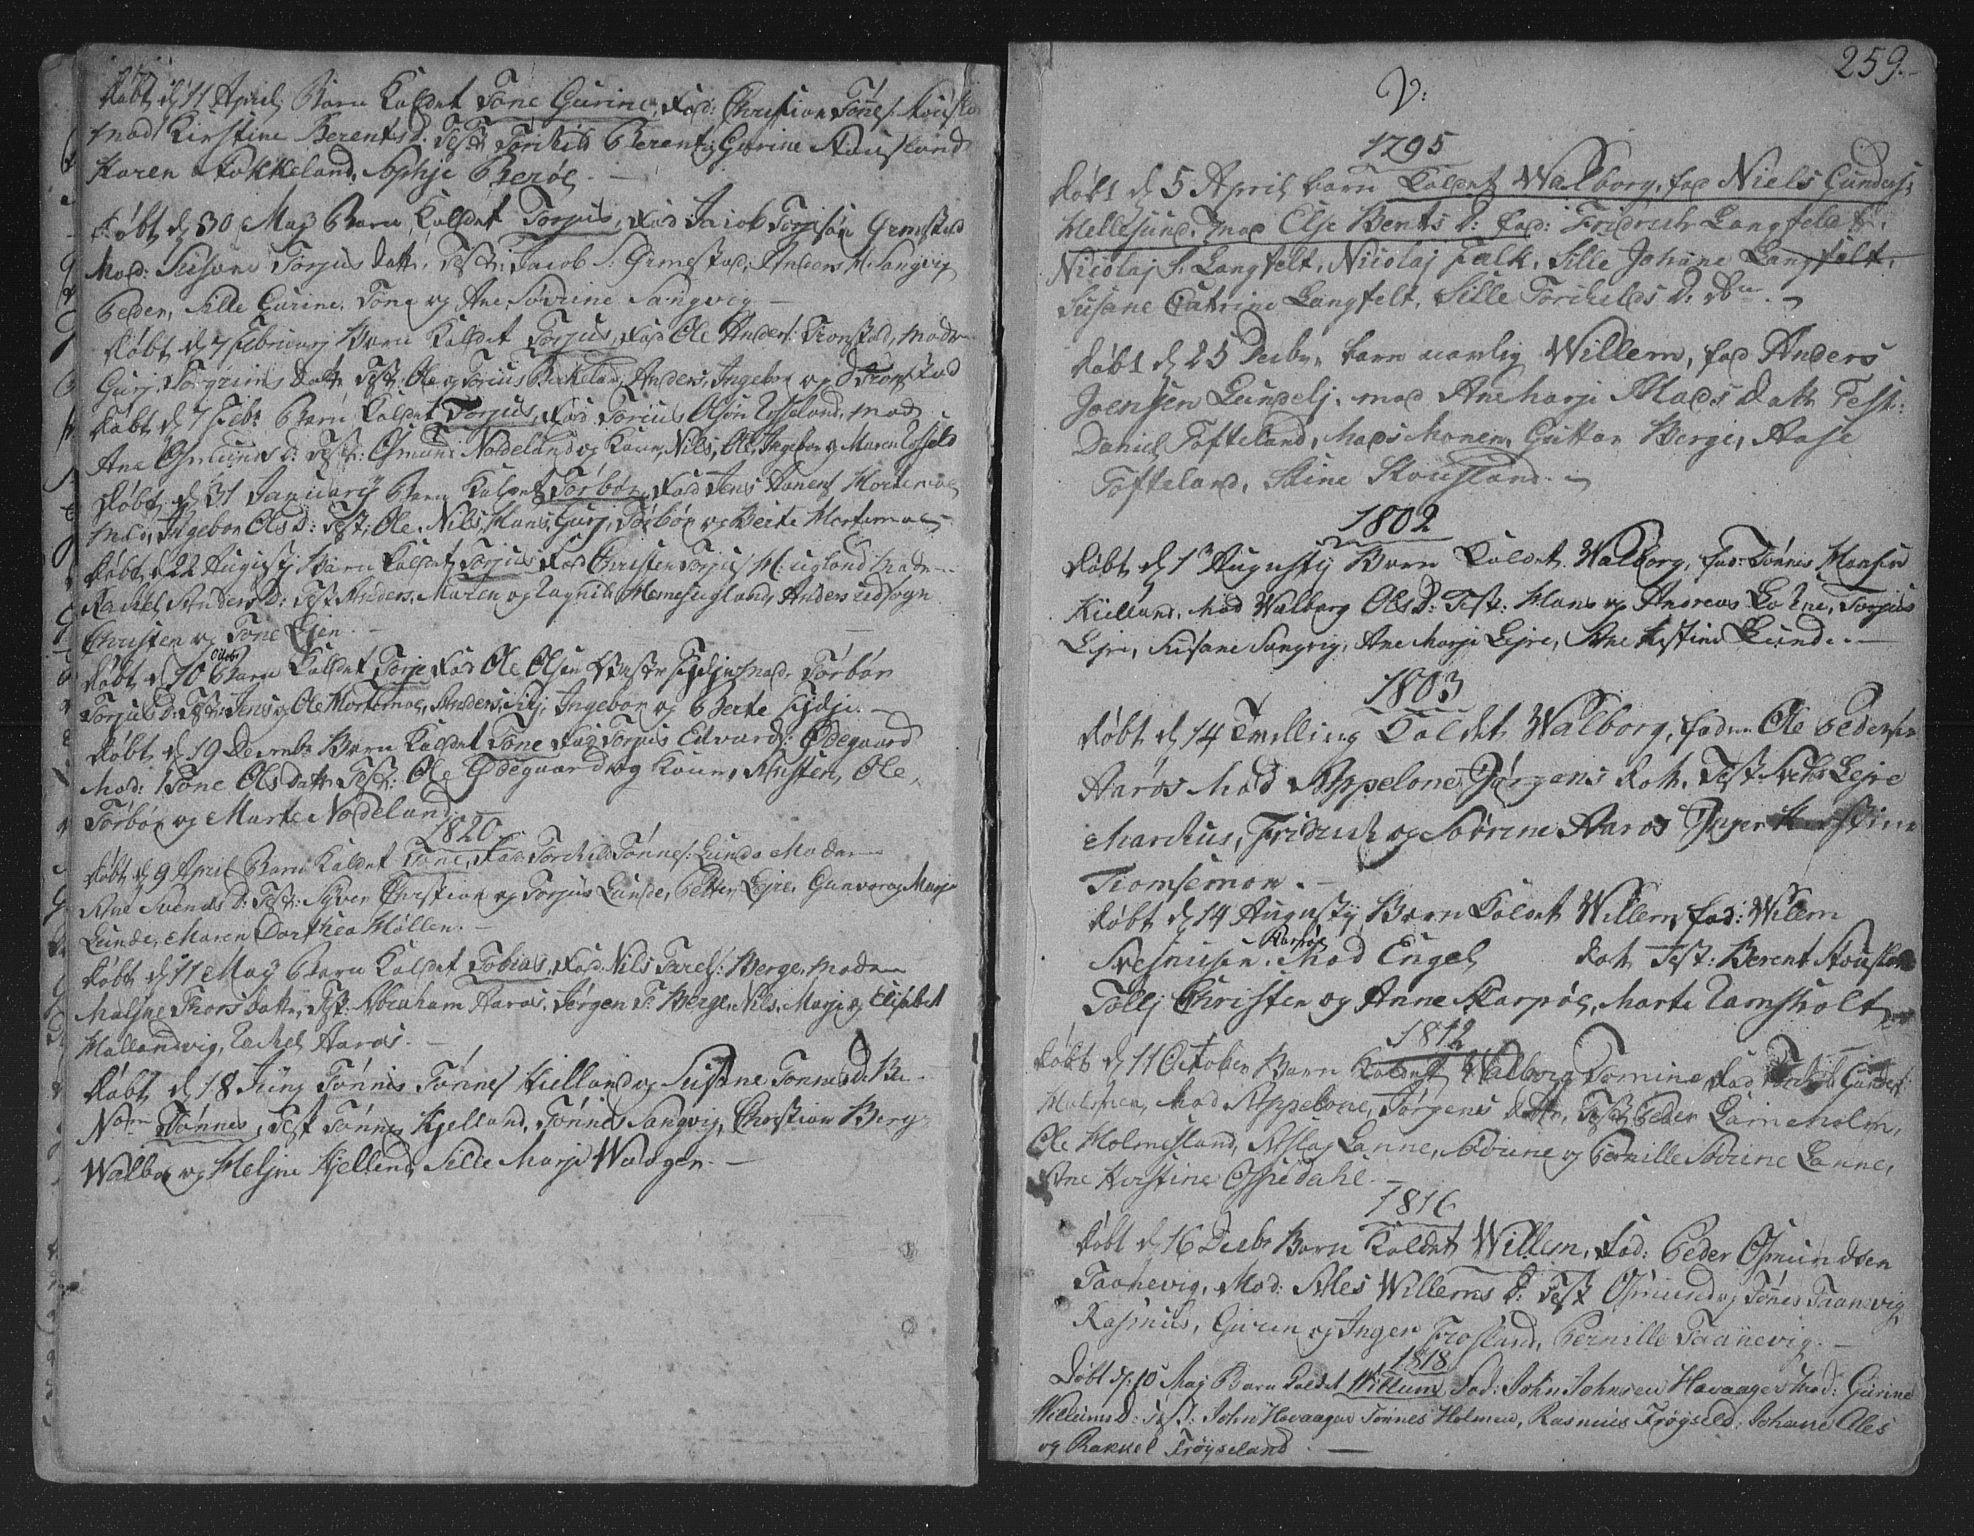 døbt d 11 April Barn Kaldet Tone Gurine, Fad: Christian Tönes.
Mod: Kirstine Berents D: Test: Torkild Berent, Gurine Stousland
Karen Stokkeland, Sophje Beröe. —
døbt d 30 May Barn Kaldet Torjus, Fad Jacob Grimestad
Mod: Susane Torjus datt. Test: Jacob S. Grimestad, Anders M. Sangvig
Peder, Sille Gurine, Tone og Ane Sovrine Sangvig —
døbt d 7 Februarj Barn Kaldet Torjus, Fad Ole Anders: Tronstad, Moder
Gurj Torgrims Datt Test: Ole og Torjus Birkeland, Anders, Ingebor og Tronstad
døbt d 7 Febr Barn Kaldet Torjus, Fad Torjus Olsøn Mod
Ane Osmunds D: Test: Osmund Nodeland og Kone, Nils, Ole, Ingebor og Maren
døbt d 31 Januarij Barn Kaldet Torbor, Fad Jens Hortemoe
Mod, Ingebor Ols D: Test: Ole, Nils, Hans, Gurj, Torbor og Berte Hortemoe
døbt d 22 Augustj Barn Kaldet Torjus Fad Christen Torjus: Heugland Mod
Rackel Anders D: Test Anders, Maren og Ragnild Homesugland, Anders udsogn
Christen og Tone Eien
Octobr
døbt d 10 Barn Kaldet Torje Fad Ole Olsen Mod: Torbor
Torjus D: Test: Jens og Ole Hortemoe, Anders, Silj, Ingebor og Berte
døbt d 19 Decembr Barn Kaldet Tone Fad Torjus Edvards: Ødegaard
Mod: Tone Ols Datt Test: Ole Ødegaard og Kone, Kristen, Ole,
Torbor og Marte Nodeland.
1820
døbt d 9 April Barn Kaldet Tone, Fad: Torkild Tönnes: Lunde Moder
Ane Svends D: Test: Syver Christian og Torjus Lunde, Petter Lejre, Gunvor og Marje
Lunde, Maren Dorthea Möllen. —
døbt d 11 May Barn Kaldet Tobias, Fad: Nils Tarels: Berge, Moder
Malene Thors datt, Test: Abraham Aaros, Jørgen T: Berge, Nils, Marje og Elisabet
Hallandvig, Rackel Aaros. —
døbt d 18 Junj Tønnis Tønnes Kielland og Susane Tonnes D: Bn
Nom Tønnes, Test Tønnes Kjelland, Tønnes Sangvig, Christian Berg
Walbor og Helene Kjelland, Sille Marje Waagen. —
259.
V:
1795
døbt d 5 April barn Kaldet Walborg, fad Niels Gunders:
Hellesund, Mod Else Bents D: fad: Fridrich Langfeldt
Nicolaj S. Langfelt, Nicolaj Falk, Sille Johane Langfelt,
Susane Catrine Langfelt, Sille Torchelds D.
døbt d 25 Decbr, barn navnlig Willem, fad Anders
Joensen Lundelj. mod Ane Marje Mads datt Test:
Daniel Tofteland, Mads Monen, Guttor Berge, Aase
Tofteland, Stine Stousland. —
1802
døbt d 1 Augustj Barn Kaldet Walborg, fad: Tønnes Hansen
Kielland, Mod Walborg Ols D: Test: Hans og Andreas Torjus
Lejre, Susane Sangvig, Ane Marje Lejre, Ane Kistine Lund. —
1803
døbt d 14 Tvilling Kaldet Walborg, fader Ole Pedersen
Aaros Mod Appelone Jørgens doh. Test Lejre
Marchus, Fridrich og Soørine Aaros Inger Kirstine
Tromsemoe. —
døbt d 14 Augustj Barn Kaldet Willem, fad: Wilem
Svejnusen Karpøe Mod Engel doh Test: Berent
Tollj Christen og Anne Karpøe, Marte Ramsholt
1812
døbt d 11 October Barn Kaldet Walborg Tomine, Fad Torkild Gunders:
Holmen, Mod Appelone Jørgens datt, Test Peder Holm,
Ole Holmesland, Aslag Lanne, Sovrine og Pernille Sovrine Lanne,
Ane Kirstine Ossedahl. —
1816
døbt d 16 Decbr Barn Kaldet Willem, Fad: Peder Osmundsen
Taanevig, Mod: Ales Willems D: Test Osmund og Tønes Taanevig
Rasmus, Guren og Inger Frosland, Pernille Taanevig. —
1818
Døbt d: 10 Maj Barn Kaldet Willum, Fad: John Johnsen Havaager Mod: Gurine
Willums D: Test: John Havaager Tønnes Holmen, Rasmus Frøyseld: Johane Ales
og Rakkel Frøyseland —